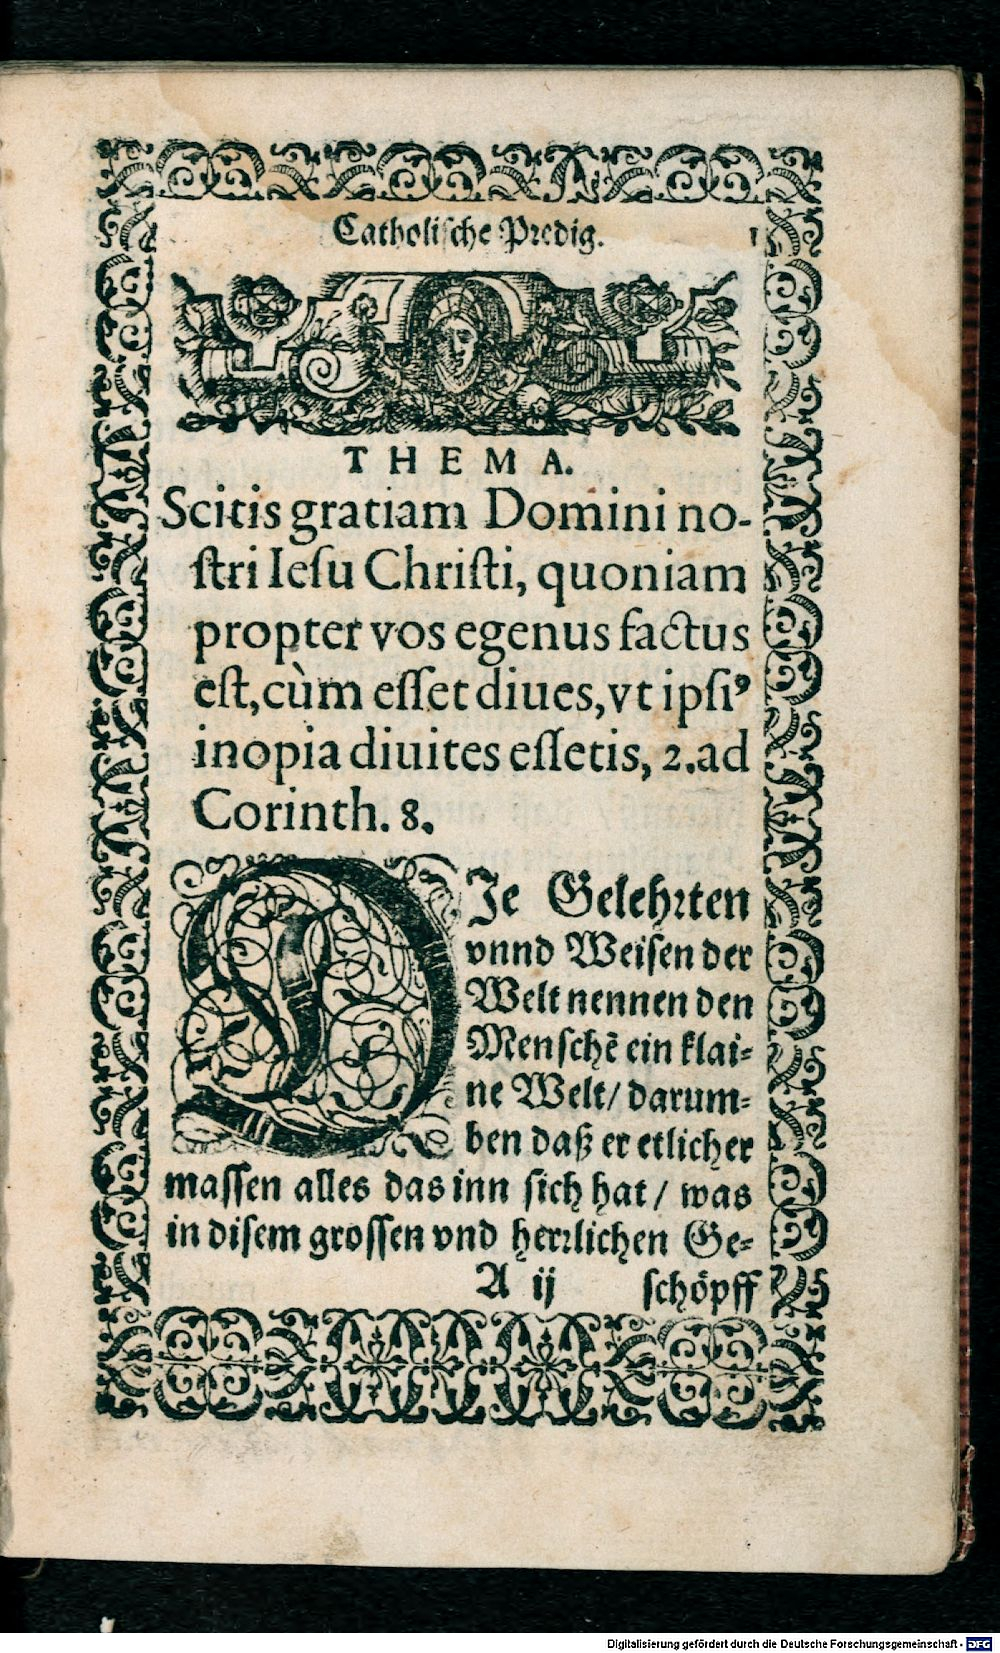 Catholische Predig. 1
THEMA.
Scitis gratiam Domini no-
ſtri Ieſu Chriſti, quoniam
propter vos egenus factus
eſt, cùm eſſet diues, vt ipſiꝰ
inopia diuites eſſetis, 2. ad
Corinth. 8.
DIe Gelehꝛten
vnnd Weiſen der
Welt nennen den
Menſchẽ ein klai⸗
ne Welt/ darum⸗
ben daß er etlicher
maſſen alles das inn ſich hat/ was
in diſem groſſen vnd herꝛlichen Ge⸗
A ij ſchöpff
Digitalisierung gefördert durch die Deutsche Forschungsgemeinschaft - DFG